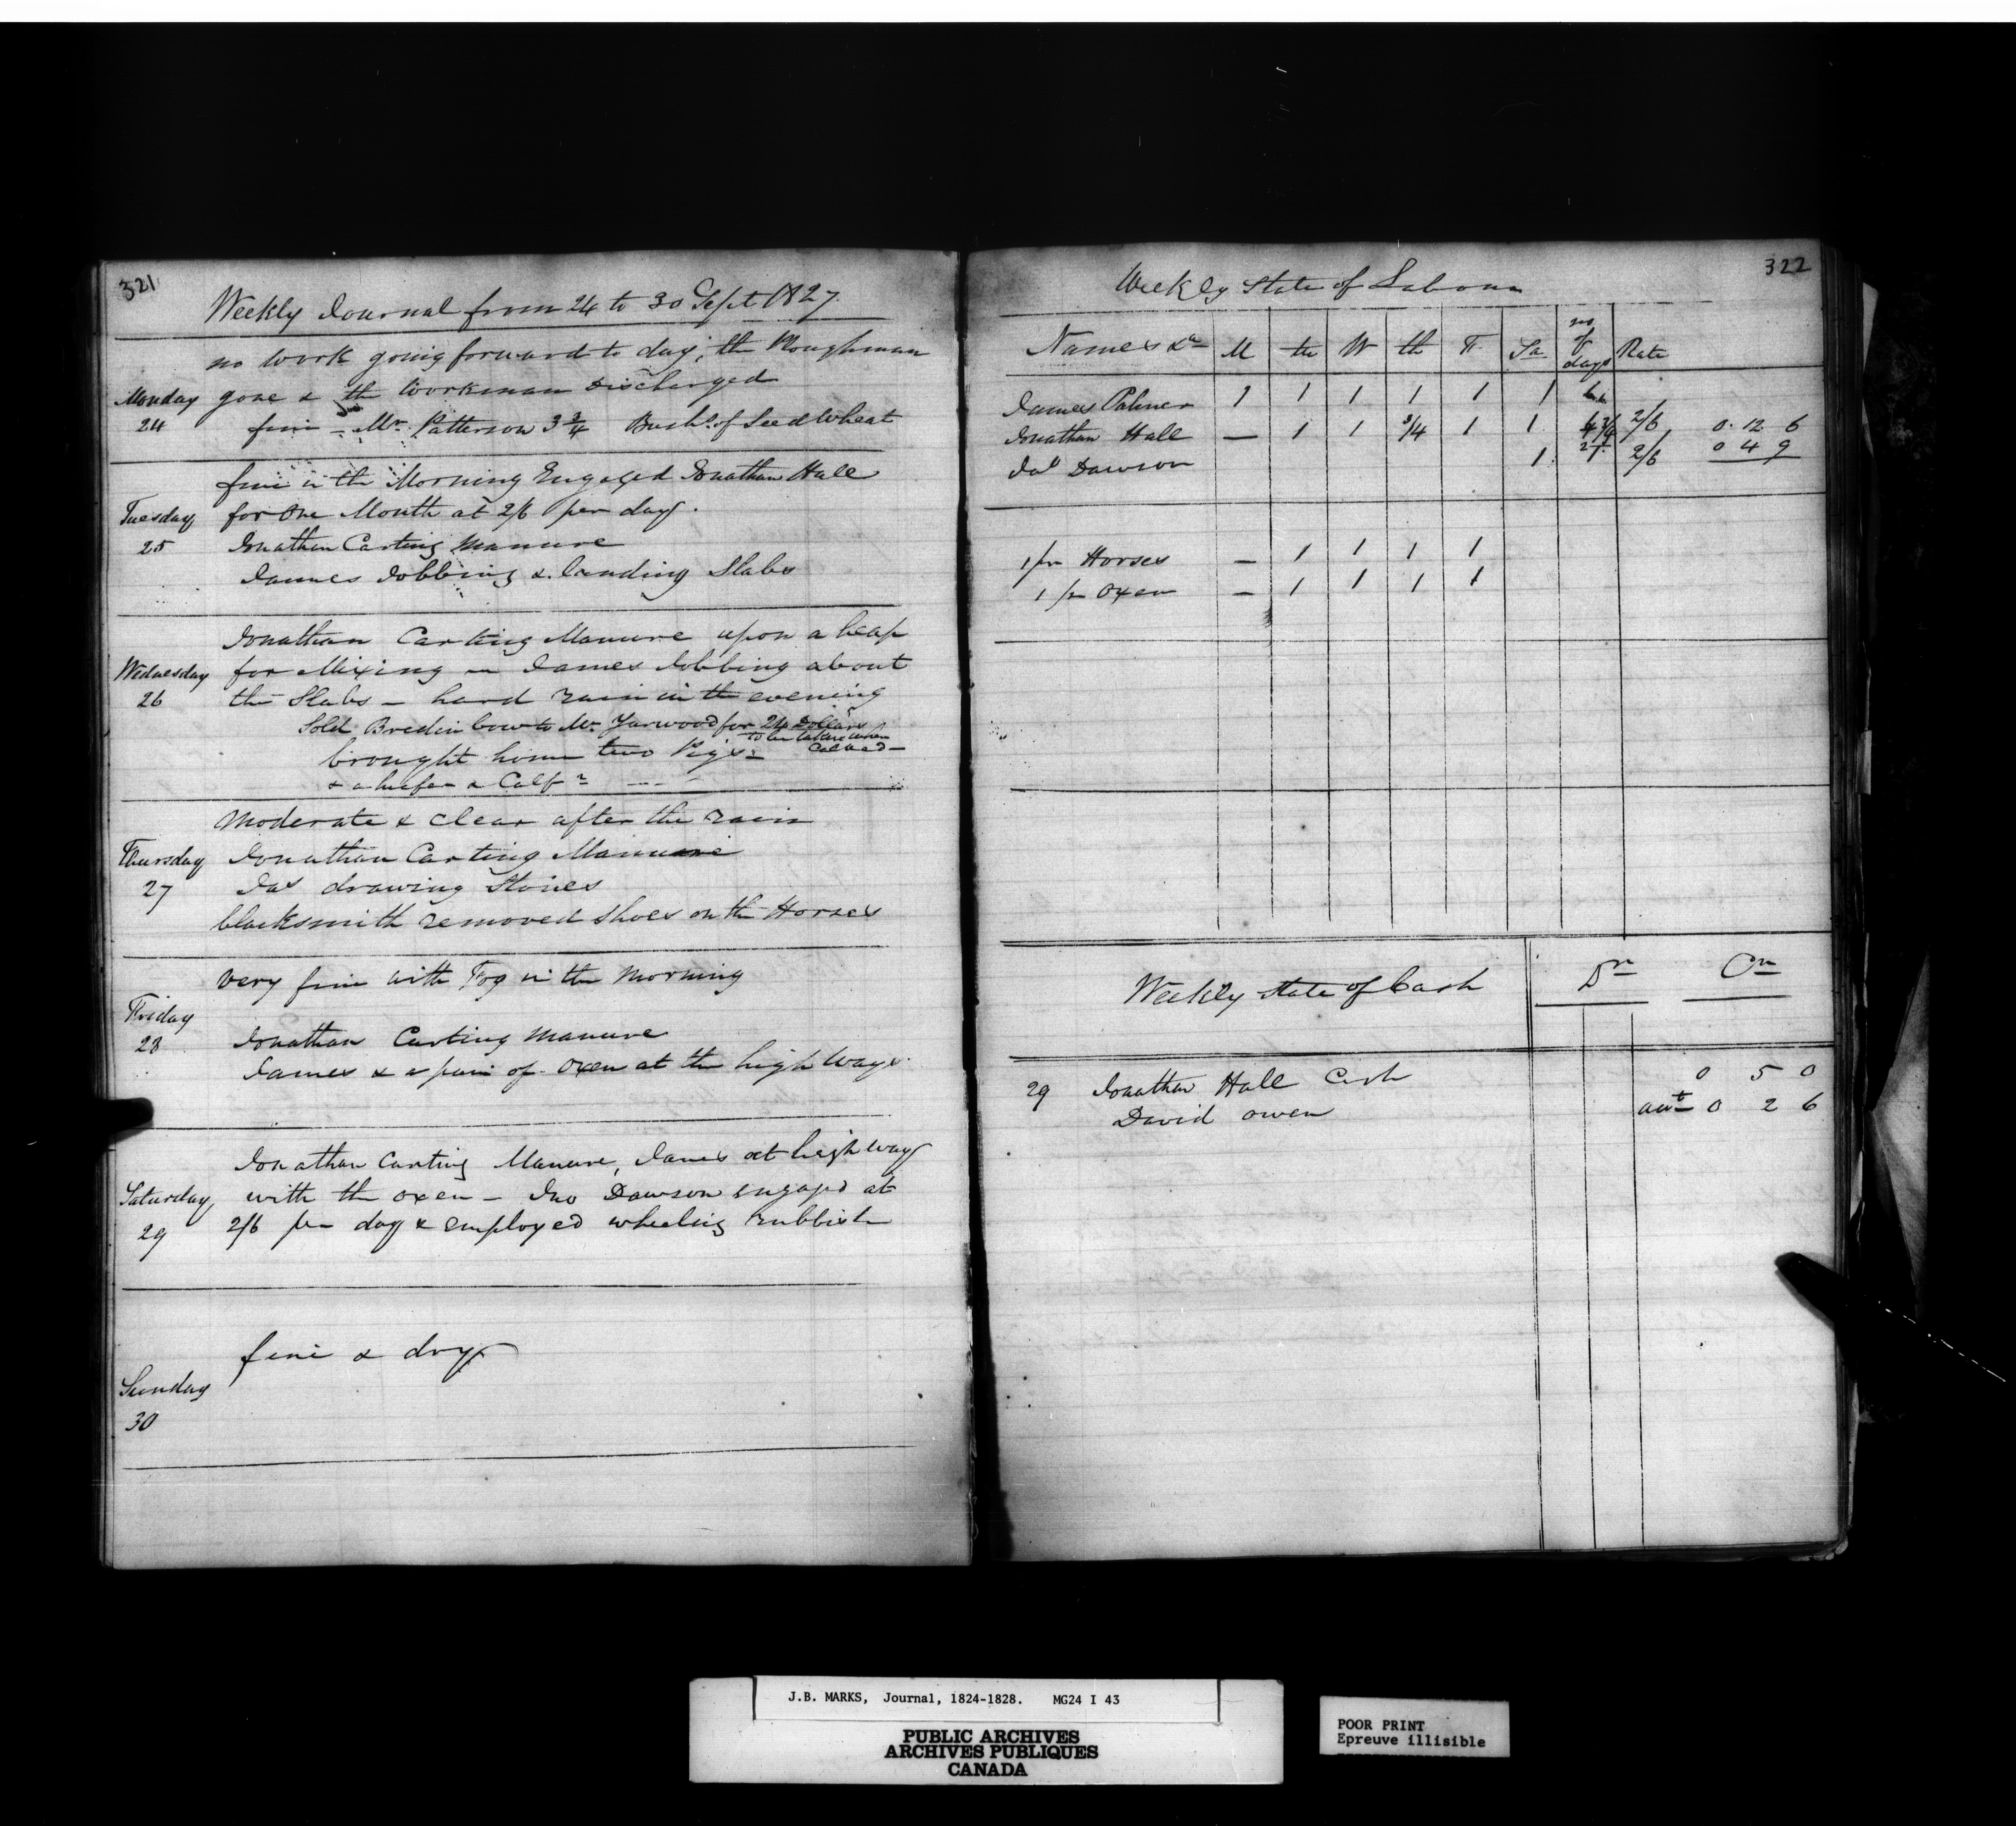 321
Weekly Journal from 24 to 30 Sept 1827
no work going forward to day, the Ploughman
Monday gone & the workman discharged
24 fine - Mr. Patterson 3 3/4 Bush. of Seed Wheat
fine in the Morning Engaged Jonathan Hall
Tuesday for One Month at 2/6 per day.
25 Jonathan Carting Manure
James Jobbing & landing Slabs
Jonathan Carting Manure upon a heap
Wednesday for Mixing - James Jobbing about
26 the Slabs - hard rain in the evening
Sold Cow to Mr. Yarwood for 24 Dollars
to be taken when
brought home two Pigs -
& a heifer & Calf
Moderate & Clear after the rain
Thursday Jonathan Carting Manure
27 Jas drawing Stones
blacksmith removed shoes on the Horses
very fine with Fog in the Morning
Friday
28 Jonathan Carting Manure
James & a pair of Oxen at the high Ways
Jonathan Carting Manure, James at high way
Saturday with the oxen - Jno Dawson engaged at
29 2/6 per day & employed wheeling rubbish
fine & dry
Sunday
30
322
Weekly State of Labour
Names &c M tu W th F Sa no of days Rate
James Palmer 1 1 1 1 1 1
Jonathan Hall — 1 1 3/4 1 1 4 3/4 2/6 0 12 6
Dawson 1 1 2/6 0 4 9
1 pr Horses — 1 1 1 1
1 pr Oxen — 1 1 1 1
Weekly state of Cash Dr Cr
29 Jonathan Hall Cash 0 5 0
David Owen 0 2 6
J.B. MARKS, Journal, 1824-1828. MG24 I 43
PUBLIC ARCHIVES
ARCHIVES PUBLIQUES
CANADA
POOR PRINT
Epreuve illisible